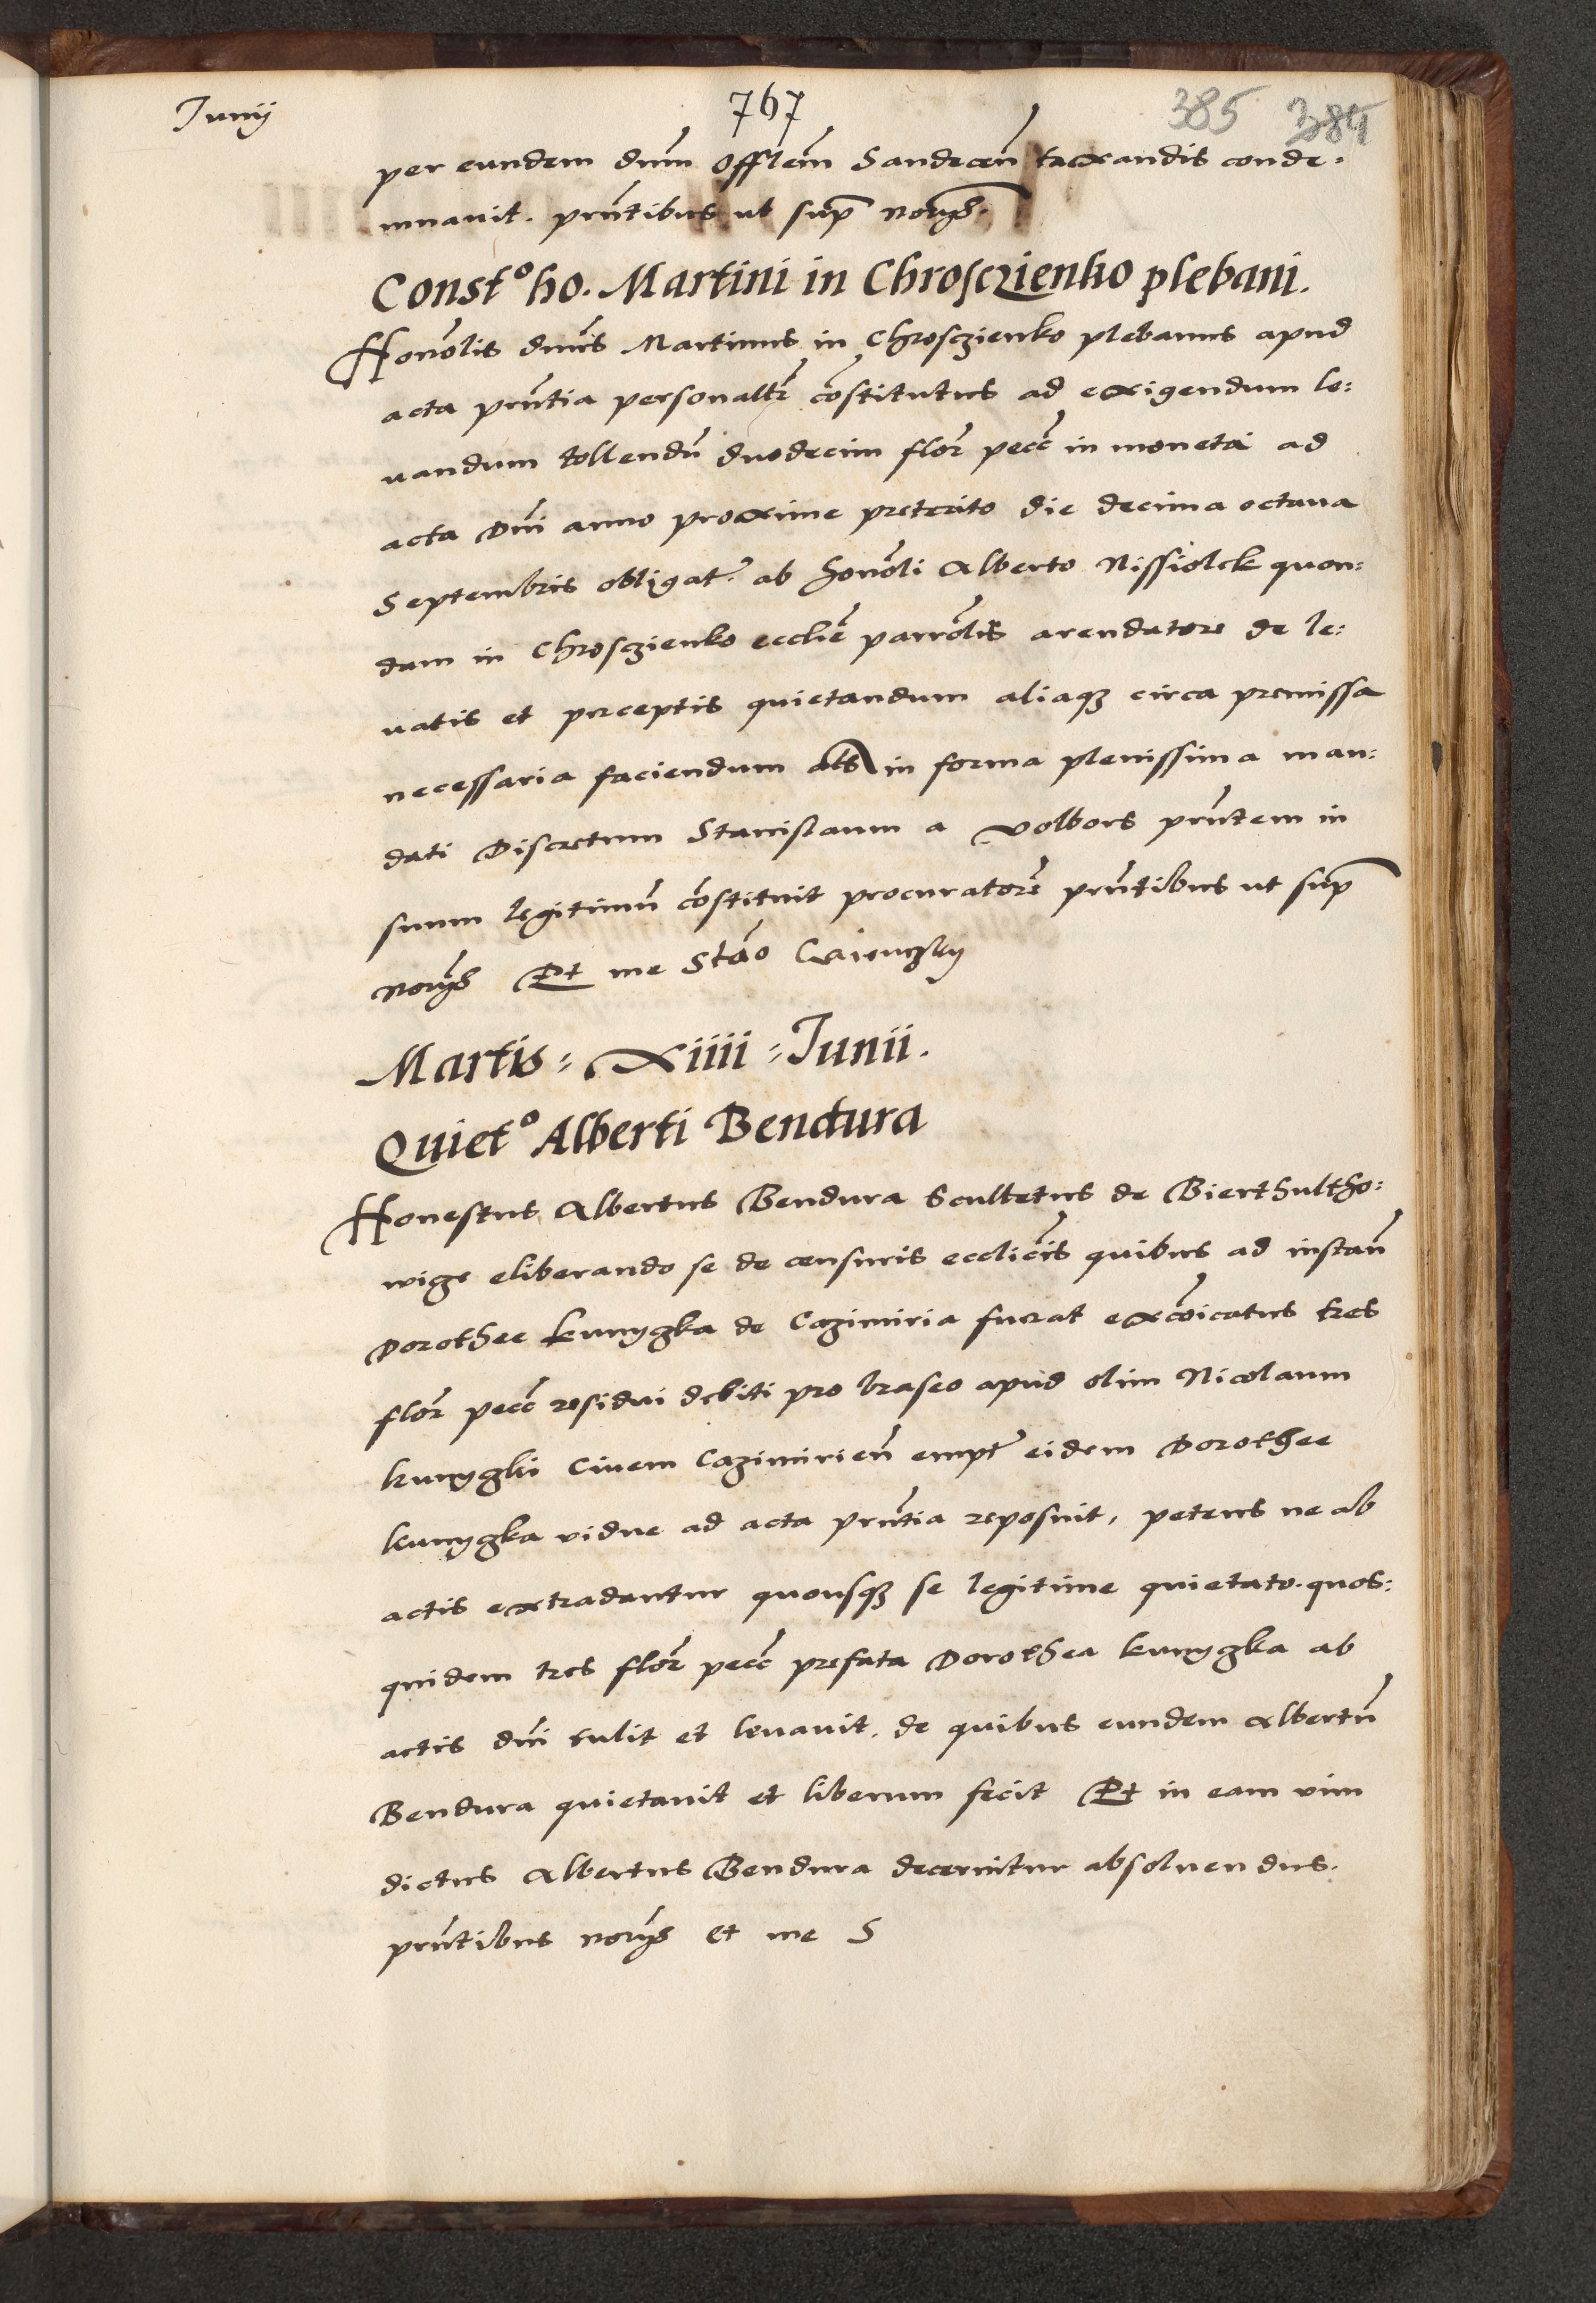 Junij 767 385 384
per eundem dnm Offlem Sandecen taxandis conde:
mnavit. prntibus ut sup norys.
Const° ho. Martini in Chrosczienko plebani.
Honolis dnus Martinus in Chrosczienko plebanus apud
acta prntia personaltr constitutus ad exigendum le:
uandum tollendu duodecim flor pecc in moneta ad
acta Dni anno proxime preterito die decima octava
Septembris obligat. ab honoli Alberto Nissiolek quon:
dam in Chrosczienko ecclie parrolis arendatore de le:
uatis et perceptis quietandum aliaqz circa premissa
necessaria faciendum als in forma plenissima man:
dati Discretum Stanislaum a Volbors prntem in
suum legitimu constituit procuratore prntibus ut sup
norys Et me Stao
Martis = Xiiii = Junii.
Quiet° Alberti Bendura
Honestus Albertus Bendura Scultetus de Bierthultho:
wige eliberando se de censuris eccliecis quibus ad instan
Dorothee kunygka de Cazimiria fuerat excoicatus tres
flor pecc residui debiti pro braseo apud olim Nicolaum
kunygki Civem Cazimirien empt eidem Dorothee
kunygka vidue ad acta prntia reposuit, petens ne ab
actis extradantur quousqz se legitime quietato. quos:
quidem tres flor pecc prefata Dorothea kunygka ab
actis dni tulit et levavit. de quibus eundem Albertu
Bendura quietavit et liberum fecit Et in eam vim
dictus Albertus Bendura decernitur absoluendus.
prntibus norys et me S